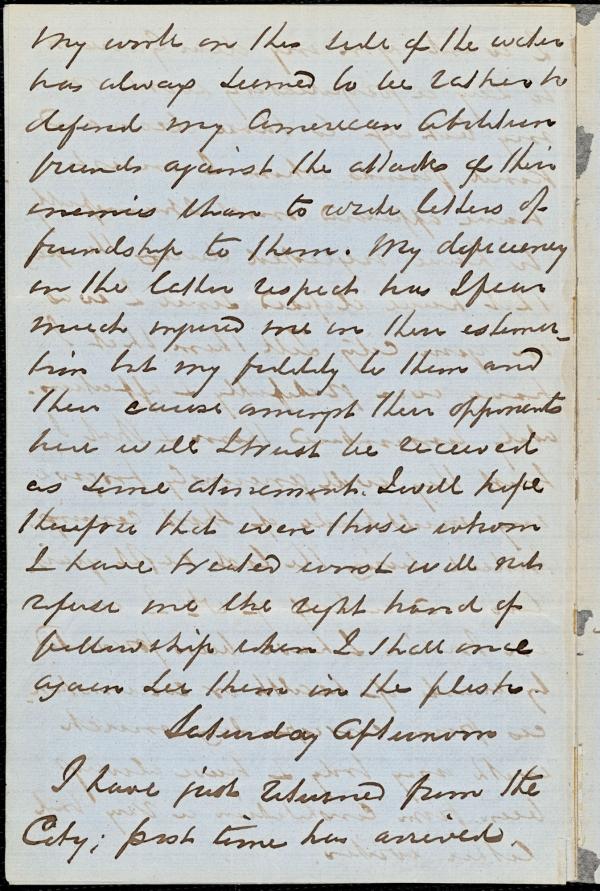 My work on this side of the water
has always seemed to be rather to
defend my American Abolition
friends against the attacks of their
enemies than to write letters of
friendship to them. My deficiency
in the latter respect has I fear
much injured me in their estima-
tion but my fidelity to them and
their cause amongst their opponents
here will I trust be received
as some atonement. I will hope
therefore that even those whom
I have treated worst will not
refuse me the right hand of
fellowship when I shall once
again see them in the flesh.
Saturday Afternoon
I have just returned from the
City; post time has arrived.